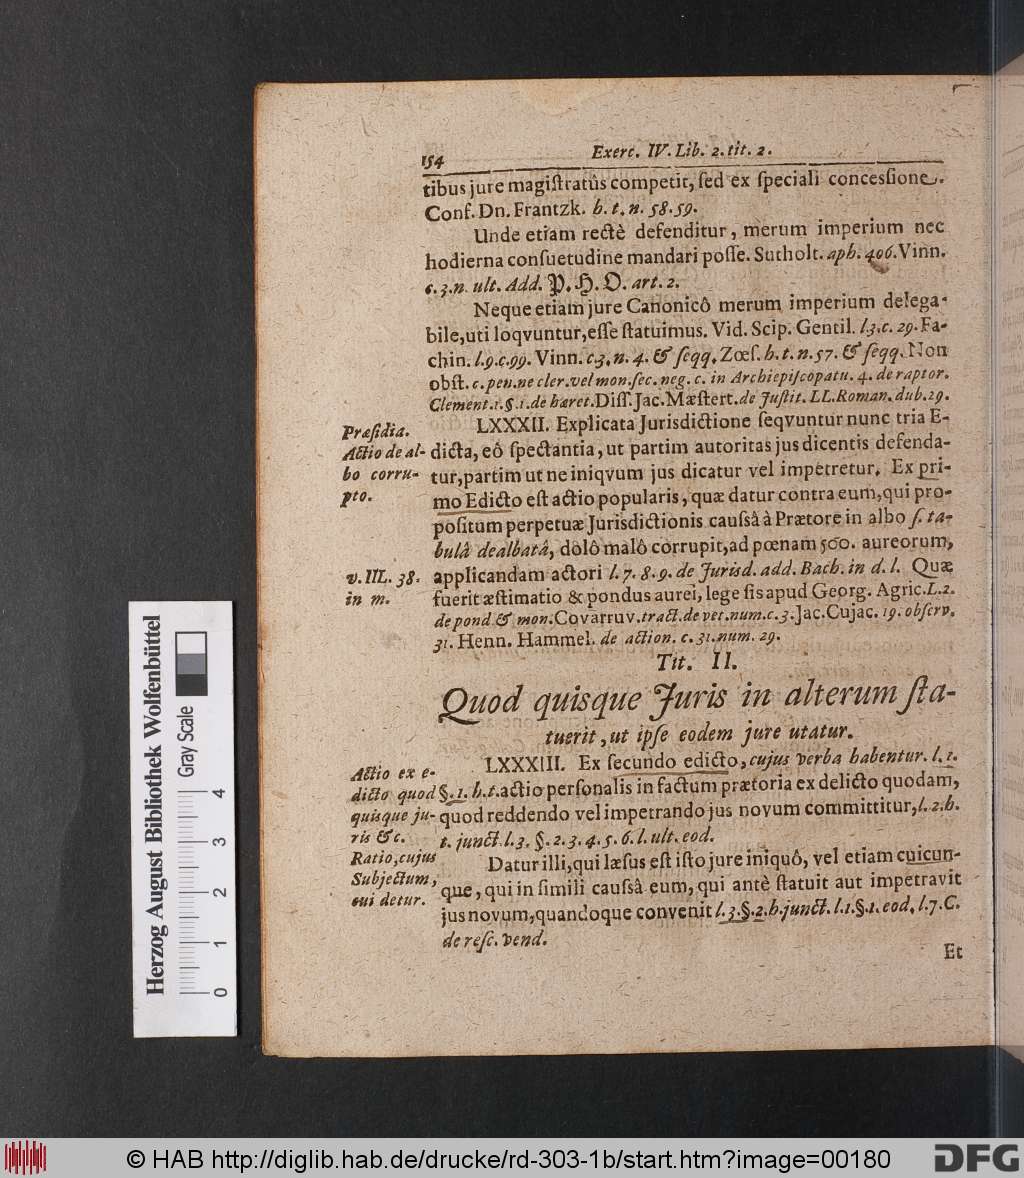 154 Exerc. IV. Lib. 2. tit. 2.
tibus jure magiſtratûs competit, ſed ex ſpeciali conceſsione.
Conf. Dn. Frantzk. h. t. n. 58. 59.
Unde etiam rectè defenditur, merum imperium nec
hodierna conſuetudine mandari poſſe. Sutholt. aph. 406. Vinn.
c. 3. n. ult. Add. P. H. O. art. 2.
Neque etiam jure Canonicô merum imperium delega-
bile, uti loqvuntur, eſſe ſtatuimus. Vid. Scip. Gentil. l. 3. c. 29. Fa-
chin. l. 9. c. 99. Vinn. c. 3. n. 4. & ſeqq. Zœſ. h. t. n. 57. & ſeqq. Non
obſt. c. pen. ne cler. vel mon. ſec. neg. c. in Archiepiſcopatu. 4. de raptor.
Clement. 1. §. 1. de hæret. Diſſ. Jac. Mæſtert. de Juſtit. LL. Roman. dub. 29.
Præſidia.
Actio de al-
bo corru-
pto.
LXXXII. Explicata Jurisdictione ſeqvuntur nunc tria E-
dicta, eô ſpectantia, ut partim autoritas jus dicentis defenda-
tur, partim ut ne iniqvum jus dicatur vel impetretur. Ex pri-
mo Edicto eſt actio popularis, quæ datur contra eum, qui pro-
poſitum perpetuæ Jurisdictionis cauſsâ à Prætore in albo ſ. ta-
bulâ dealbatâ, dolô malô corrupit, ad pœnam 500. aureorum,
v. IIL. 38.
in m.
applicandam actori l. 7. 8. 9. de Jurisd. add. Bach. in d. l. Quæ
fuerit æſtimatio & pondus aurei, lege ſis apud Georg. Agric. L. 2.
de pond. & mon. Covarruv. tract. de vet. num. c. 3. Jac. Cujac. 19. obſerv.
31. Henn. Hammel. de action. c. 31. num. 29.
Tit. II.
Quod quisque Juris in alterum ſta-
tuerit, ut ipſe eodem jure utatur.
Actio ex e-
dicto quod
quisque ju-
ris &c.
Ratio, cujus
Subjectum,
cui detur.
LXXXIII. Ex ſecundo edicto, cujus verba habentur. l. 1.
§. 1. h. t. actio perſonalis in factum prætoria ex delicto quodam,
quod reddendo vel impetrando jus novum committitur, l. 2. h.
t. junct. l. 3. §. 2. 3. 4. 5. 6. l. ult. eod.
Datur illi, qui læſus eſt iſto jure iniquô, vel etiam cuicun-
que, qui in ſimili cauſsâ eum, qui antè ſtatuit aut impetravit
jus novum, quandoque convenit l. 3. §. 2. h. junct. l. 1. §. 1. eod. l. 7. C.
de reſc. vend.
Et
Herzog August Bibliothek Wolfenbüttel
Gray Scale
0 1 2 3 4
© HAB http://diglib.hab.de/drucke/rd-303-1b/start.htm?image=00180
DFG